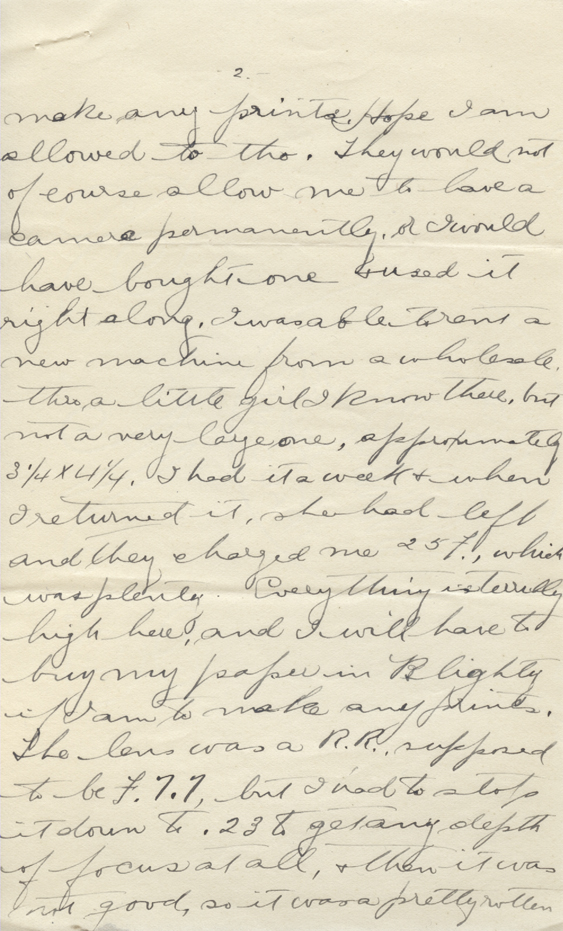 2.
make any prints. Hope I am
allowed to tho. They would not
of course allow me to have a
camera permanently, or I would
have bought one & used it
right along. I was able to rent a
new machine from a wholesale.
thro, a little girl I know there, but
not a very large one, approximately
3 1/4 x 4 1/4. I had it a week & when
I returned it, she had left
and they charged me 25 f., which
was plenty. Everything is terribly
high here, and I will have to
buy my paper in Blighty
if I am to make any prints.
The lens was a R.R., supposed
to be F. 7.7, but I had to stop
it down to .23 to get any depth
of focus at all, & then it was
not good, so it was a pretty rotten